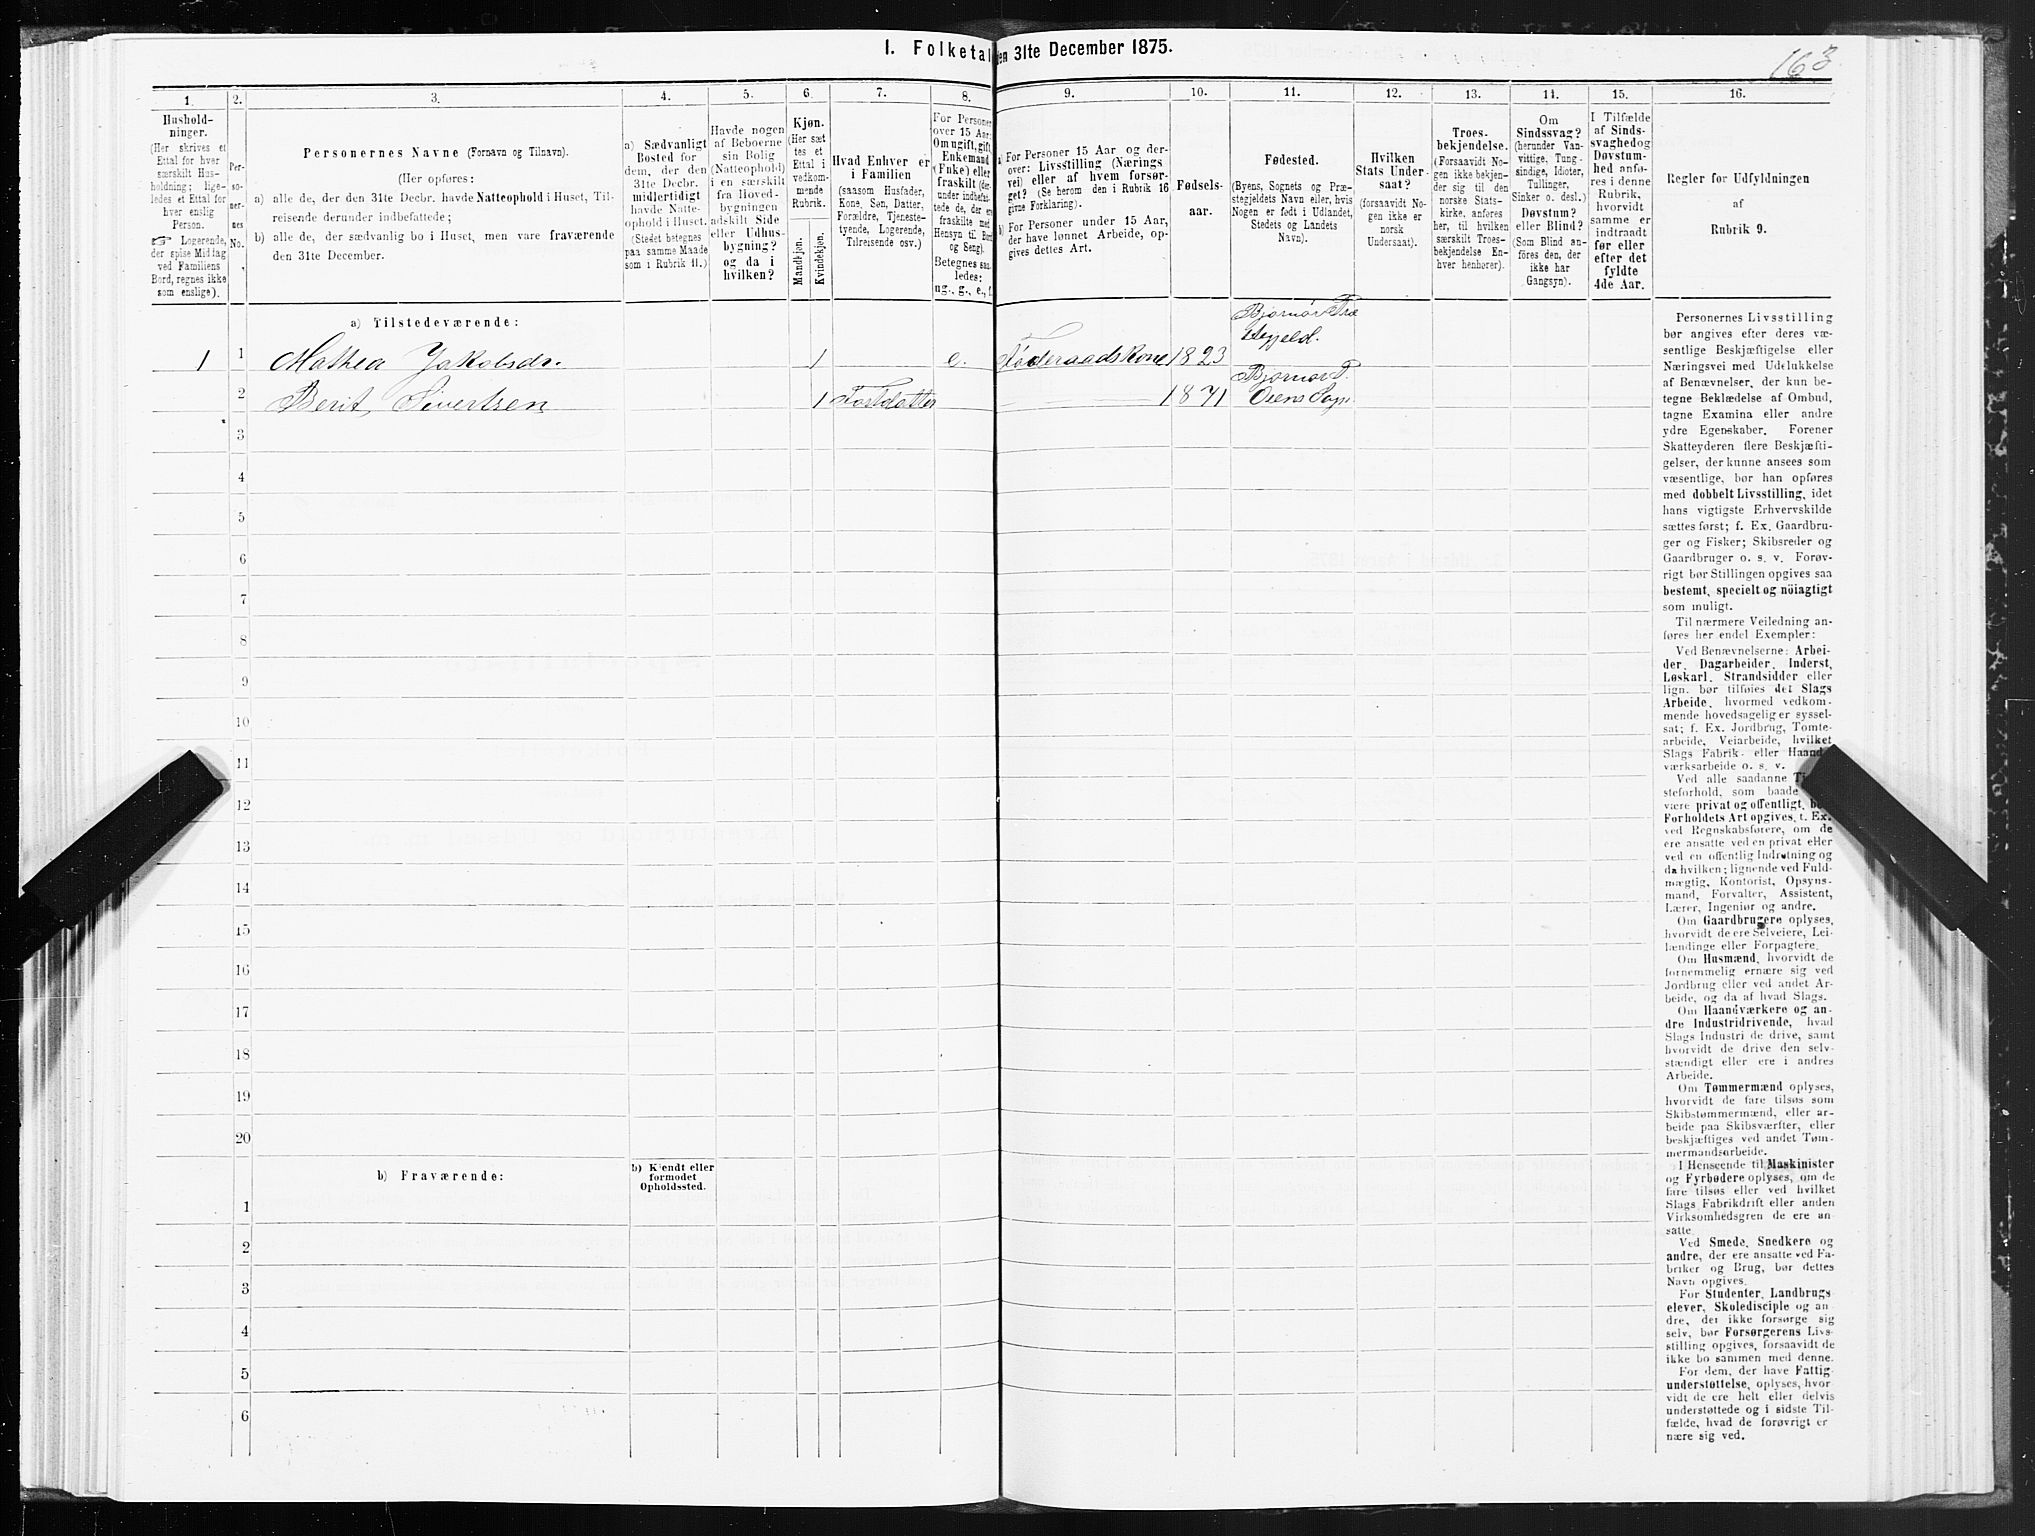 I. Folketal den 31te December 1875.
163
1.
2.
3.
4.
5.
6.
7.
8.
9.
10.
11.
12.
13.
14.
15.
16.
Hushold-
ninger.
(Her skrives et
Ettal for hver
særskilt Hus-
holdning; lige-
ledes et Ettal for
hver enslig
Person.
☞ Logerende,
der spise Middag
ved Familiens
Bord, regnes ikke
som enslige).
Per-
so-
ner-
nes
No.
Personernes Navne (Fornavn og Tilnavn).
(Her opføres:
a) alle de, der den 31te Decbr. havde Natteophold i Huset, Til-
reisende derunder indbefattede;
b) alle de, der sædvanlig bo i Huset, men vare fraværende
den 31te December.
a) Sædvanligt
Bosted for
dem, der den
31te Decbr.
midlertidigt
havde Natte-
ophold i Huset.
(Stedet betegnes
paa samme Maade
som i Rubrik 11.)
Havde nogen
af Beboerne
sin Bolig
(Natteophold)
i en særskilt
fra Hoved-
bygningen
adskilt Side
eller Udhus-
bygning?
og da i
hvilken?
Kjøn.
(Her sæt
tes et
Ettal i
vedkom-
mende
Rubrik.
Mandkjøn.
Kvindekjøn.
Hvad Enhver er
i Familien
(saasom Husfader,
Kone, Søn, Datter,
Forældre, Tjeneste-
tyende, Logerende,
Tilreisende osv.)
For Personer
over 15 Aar:
Om ugift, gift,
Enkemand
(Enke) eller
fraskilt (der-
under indbefat-
tede de, der ere
fraskilte med
Hensyn til Bord
og Seng).
Betegnes saa-
ledes:
ug., g., e., f.
a) For Personer 15 Aar og der-
over: Livsstilling (Nærings
vei) eller af hvem forsør-
get? (Se herom den i Rubrik 16
givne Forklaring).
b) For Personer under 15 Aar,
der have lønnet Arbeide, op-
gives dettes Art.
Fødsels-
aar.
Fødested.
(Byens, Sognets og Præ-
stegjeldets Navn eller, hvis
Nogen er født i Udlandet,
Stedets og Landets
Navn).
Hvilken
Stats Under-
saat?
(forsaavidt No-
gen ikke er
norsk
Undersaat).
Troes-
bekjendelse.
(Forsaavidt No-
gen ikke bekjen-
der sig til den
norske Stats-
kirke, anføres
her, til hvilken
særskilt Troes-
bekjendelse En-
hver henhører).
Om
Sindssvag?
(herunder Van-
vittige, Tung-
sindige, Idioter,
Tullinger,
Sinker o. desl.)
Døvstum?
eller Blind?
(Som Blind an-
föres den, der
ikke har
Gangsyn).
I Tilfælde
af Sinds-
svaghed og
Døvstum-
hed anfø-
res i denne
Rubrik,
hvorvidt
samme er
indtraadt
før eller
efter det
fyldte
4de Aar.
Regler for Udfyldningen
af
Rubrik 9.
a) Tilstedeværende:
Bjørnør Præ
stegjeld.
1 1 Mathea Jakobsdr. 1 e. Føderaadskone 1823
Bjørnør P.
2 Berit Sivertsen 1 Fostdatter 1871 Osens Sogn
3
4
5
6
7
8
9
10
11
12
13
14
15
16
17
18
19
20
b) Fraværende:
b) Kjendt eller
formodet
Opholdssted.
1
2
3
4
5
6
Personernes Livsstilling
bør angives efter deres væ-
sentlige Beskjæftigelse eller
Næringsvei med Udelukkelse
af Benævnelser, der kun be-
tegne Beklædelse af Ombud,
tagne Examina eller andre
ydre Egenskaber. Forener
Skatteyderen flere Beskjæfti-
gelser, der kunne ansees som
væsentlige, bør han opføres
med dobbelt Livsstilling, idet
hans vigtigste Erhvervskilde
sættes først; f. Ex. Gaardbru-
ger og Fisker; Skibsreder og
Gaardbruger o. s. v. Forøv-
rigt bør Stillingen opgives saa
bestemt, specielt og nöiagtigt
som muligt.
Til nærmere Veiledning an-
føres her endel Exempler:
Ved Benævnelserne: Arbei-
der, Dagarbeider, Inderst,
Løskarl, Strandsidder eller
lign. bør tilføies det Slags
Arbeide, hvormed vedkom-
mende hovedsagelig er syssel-
sat; f. Ex. Jordbrug, Tomte-
arbeide, Veiarbeide, hvilket
Slags Fabrik- eller Haand-
værksarbeide o. s. v.
Ved alle saadanne
steforhold, som baade
være privat og offentligt,
Forholdets Art opgives, t. Ex.
ved Regnskabsførere, om de
ere ansatte ved en privat eller
ved en offentlig Indretning og
da hvilken; lignende ved Fuld-
mægtig, Kontorist, Opsyns-
mand, Forvalter, Assistent,
Lærer, Ingeniør og andre.
Om Gaardbrugere oplyses,
hvorvidt de ere Selveiere, Lei-
lændinge eller Forpagtere.
Om Husmænd, hvorvidt de
fornemmelig ernære sig ved
Jordbrug eller ved andet Ar-
beide, og da af hvad Slags.
Om Haandværkere og an-
dre Industridrivende, hvad
Slags Industri de drive, samt
hvorvidt de drive den selv-
stændigt eller ere i andres
Arbeide.
Om Tømmermænd oplyses,
hvorvidt de fare tilsøs som
Skibstømmermænd, eller ar-
beide paa Skibsværfter, eller
beskjæftiges ved andet Tøm-
mermandsarbeide.
I Henseende til Maskinister
og Fyrbødere oplyses, om de
fare tilsøs eller ved hvilket
Slags Fabrikdrift eller anden
Virksomhedsgren de ere an-
satte.
Ved Smede, Snedkere og
andre, der ere ansatte ved Fa-
briker og Brug, bør dettes
Navn opgives.
For Studenter, Landbrugs-
elever, Skoledisciple og an-
dre, der ikke forsørge sig
selv, bør Forsørgerens Livs-
stilling opgives, forsaavidt de
ikke bo sammen med denne.
For dem, der have Fattig-
understøttelse, oplyses, hvor
vidt de ere helt eller delvis
understøttede og i sidste Til-
fælde, hvad de forøvrigt er
nære sig ved.